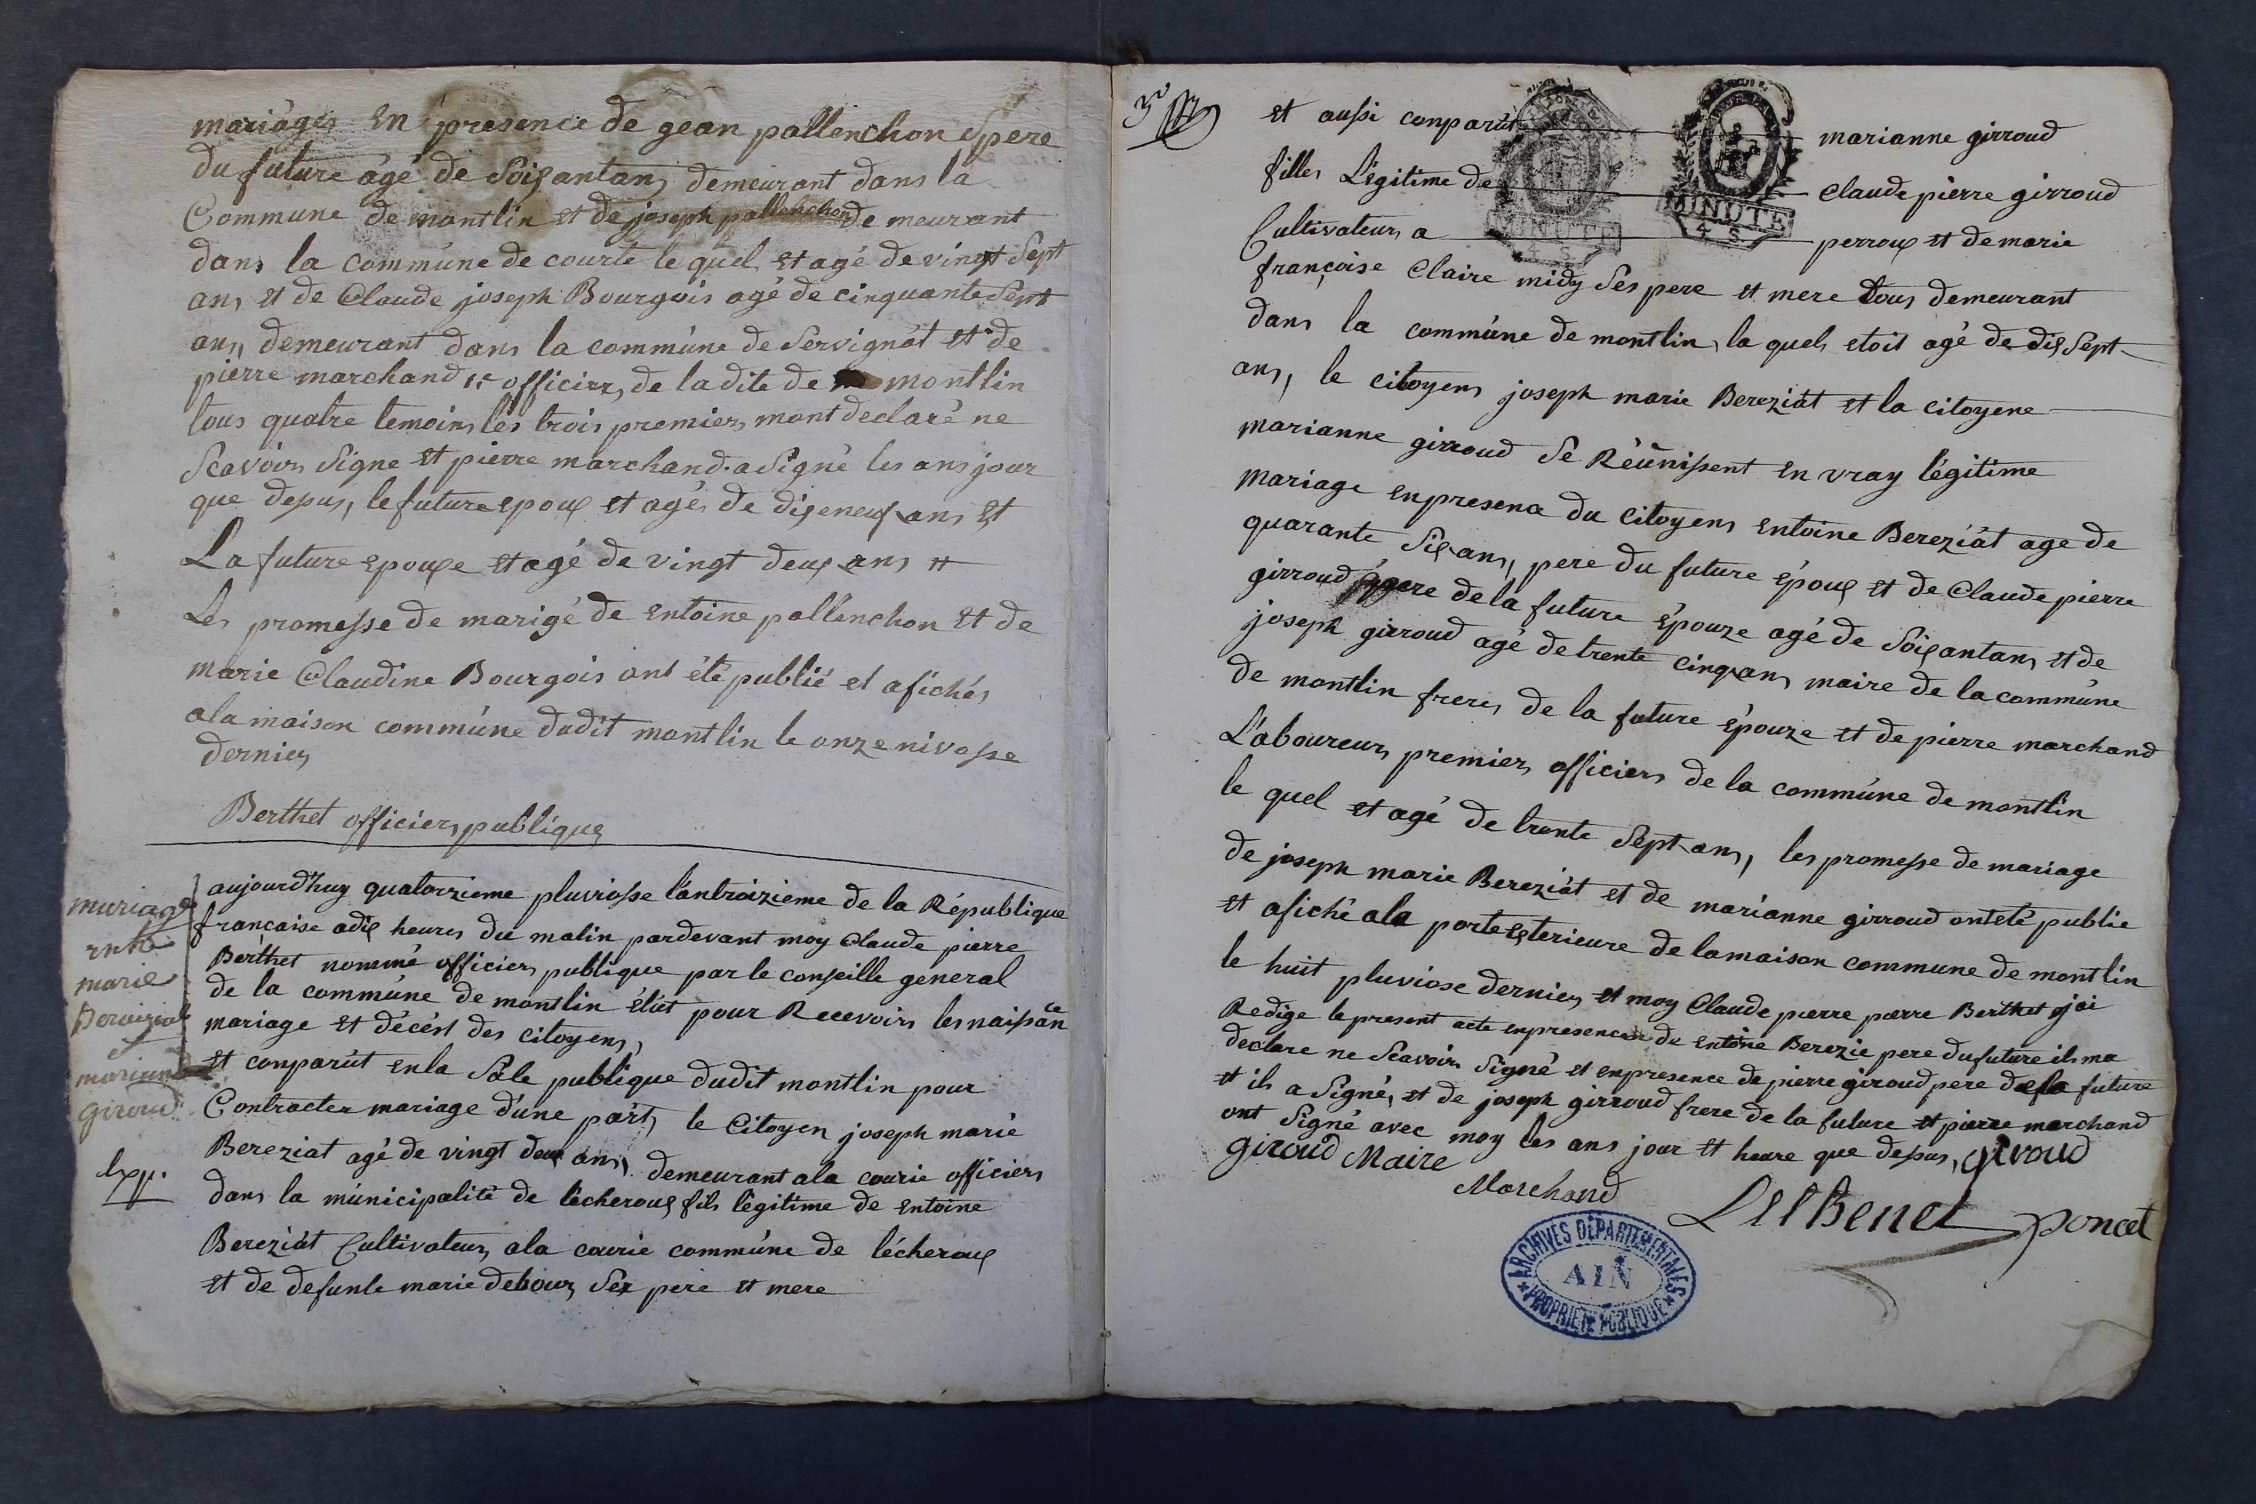 mariages En presence de gean pallenchon pere
du future agé de Soixantans demeurant dans la
Commune de montlin et de joseph pallenchon de meurant
dans la commúne de courte le quel et agé de vingt Sept
ans et de Claude joseph Bourgois agé de cinquante Sept
ans, demeurant dans la commúne de Servignát et de
pierre marchand 1r officiers de la dite de montlin
tous quatre temoins les trois premiers mont declaré ne
Scavoirs Signe et pierre marchand a Signé les ans jour
que depus, le future epoux et agés de dixeneuf ans Et
La future epouxe et agé de vingt deux ans
Les promesse de marigé de entoine pallenchon et de
marie Claudine Bourgois ont été publié et afichés
ala maison commúne dudit montlin le onze nivosse
derniers
Berthet officiers publique
mariage
entre
marie
Bereziat
et
marianne
giroud
Exp.
aujourd'huy quatorzieme pluviosse lantroizieme de la République
francaise adix heures du matin pardevant moy Claude pierre
Berthet nommé officiers publique par le conseille general
de la commúne de montlin élút pour Recevoirs les naissance
mariage et décést des citoyens,
et conparút en la Sale publique dudit montlin pour
Contracter mariage d'une párt, le Citoyen joseph marie
Bereziat agé de vingt deux ans, demeurant ala courie officiers
dans la múnicipalité de lécheroux fils légitime de entoine
Bereziát Cultivateurs ala courie commúne de lécheroux
et de defunte marie debours Ses pere et mere
3e
et aussi conparút marianne girroud
filles Légitime de claude pierre girroud
MINUTE
4 S
MINUTE
4 S
Cultivateurs a perroux et de marie
françoise Claire midy Ses pere et mere tous demeurant
dans la commúne de montlin, la quels etoit agé de dix Sept
ans, le citoyens joseph marie Bereziát et la citoyene
marianne girroud Se Réúnissent en vray légitime
mariage en presence du citoyens entoine Bereziát age de
quarante Six ans, pere du future époux et de Claude pierre
girroud pere de la future épouze agé de Soixantans et de
joseph girroud agé de trente cinq ans maire de la commúne
de montlin freres de la future épouze et de pierre marchand
L'aboureurs premiers officiers de la commúne de montlin
le quel et agé de trente Sept ans, les promesse de mariage
de joseph marie Bereziát et de marianne girroud ont eté publie
et afiché ala porte exterieure de la maison commune de montlin
le huit pluviose derniers et moy Claude pierre pierre Berthet jai
Redige le present acte en presence du entoine Berezie pere du future il ma
declare ne Scavoirs Signé et en presence de pierre giroud pere de la future
et ils a Signé, et de joseph girroud frere de la future et pierre marchand
ont Signé avec moy les ans jour et heure que depus, giroud
Giroud Maire
Marchand
poncet
ARCHIVES DÉPARTEMENTALES
AIN
PROPRIÉTÉ PUBLIQUE